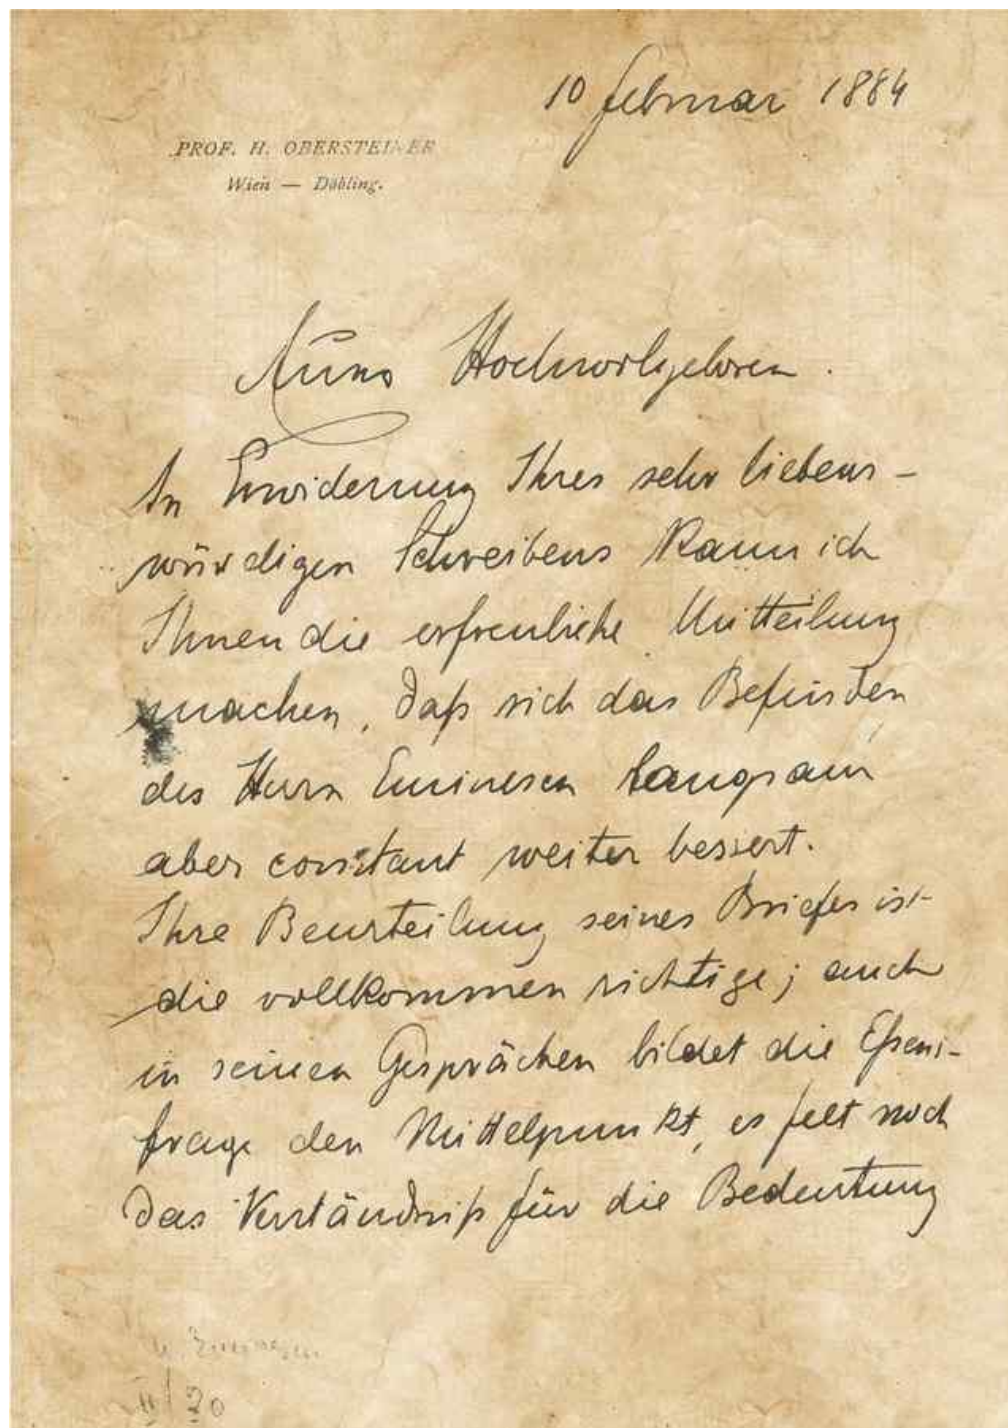 10 februar 1884
PROF. H. OBERSTEINER
Wien — Döbling.
Hochwolgeboren.
In Erwiderung Ihres sehr liebens-
würdigen Schreibens kann ich
Ihnen die erfreuliche Mitteilung
machen, daß sich das Befinden
des Herrn Eminescu langsam
aber constant weiter bessert.
Ihre Beurteilung seines Briefes ist
die vollkommen richtige; auch
in seinen Gesprächen bildet die Eßens-
frage den Mittelpunkt, es felt noch
das Verständniß für die Bedeutung
II/20